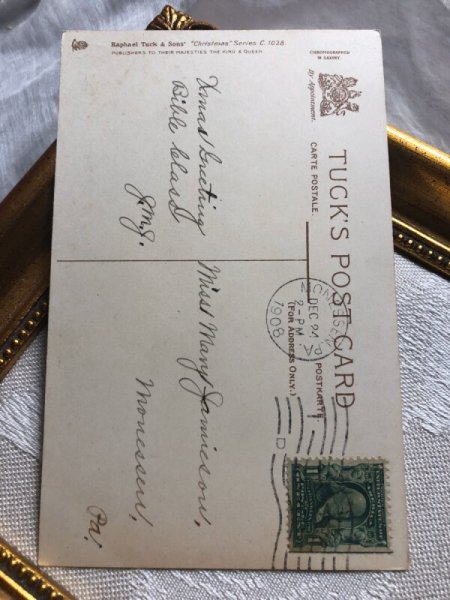 Raphael Tuck & Sons' "Christmas" Series C. 1028.
PUBLISHERS TO THEIR MAJESTIES THE KING & QUEEN.
CHROMOGRAPHED
IN SAXONY
By Appointment.
TUCK'S POST CARD
CARTE POSTALE.
POSTKARTE.
(FOR ADDRESS ONLY.)
MONESSEN
DEC 24
2-PM
1908
PA
Xmas Greeting
Bible Class
J.M.J.
Miss Mary Jamieson,
Monessen,
Pa.